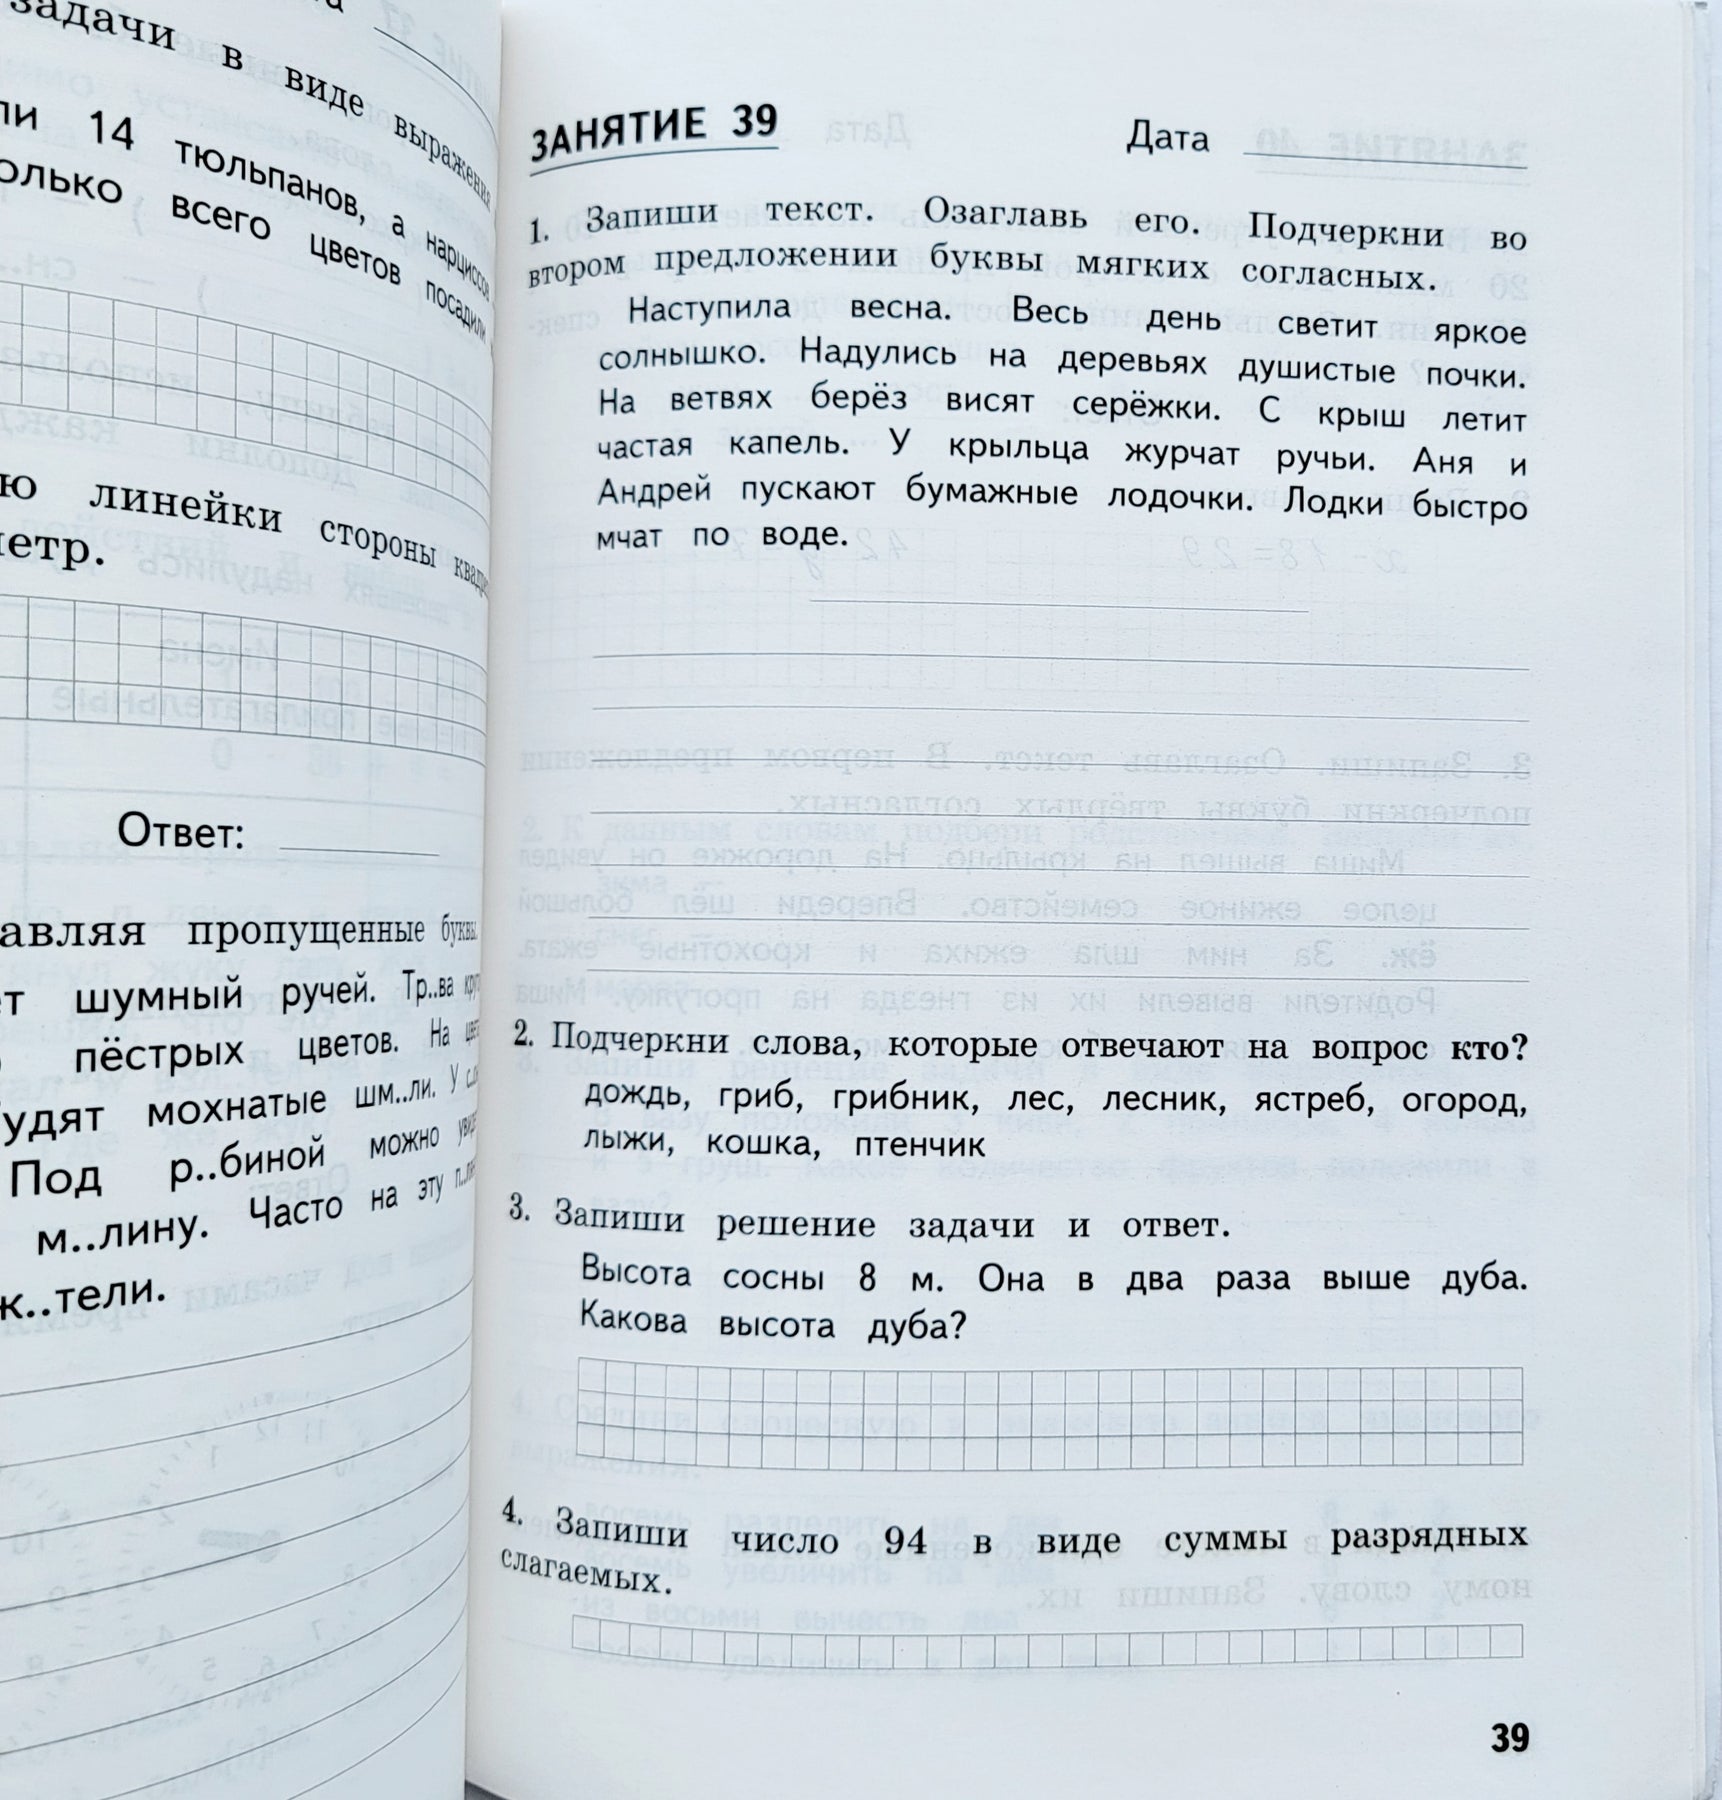 задачи в виде выражения
14 тюльпанов, а нарциссов
всего цветов посадили
линейки стороны
Ответ:
пропущенные буквы.
шумный ручей. Тр..ва
пёстрых цветов. На
мохнатые шм..ли. У
Под р..биной можно
м..лину. Часто на эту
ж..тели.
ЗАНЯТИЕ 39 Дата
1. Запиши текст. Озаглавь его. Подчеркни во
втором предложении буквы мягких согласных.
Наступила весна. Весь день светит яркое
солнышко. Надулись на деревьях душистые почки.
На ветвях берёз висят серёжки. С крыш летит
частая капель. У крыльца журчат ручьи. Аня и
Андрей пускают бумажные лодочки. Лодки быстро
мчат по воде.
2. Подчеркни слова, которые отвечают на вопрос кто?
дождь, гриб, грибник, лес, лесник, ястреб, огород,
лыжи, кошка, птенчик
3. Запиши решение задачи и ответ.
Высота сосны 8 м. Она в два раза выше дуба.
Какова высота дуба?
4. Запиши число 94 в виде суммы разрядных
слагаемых.
39